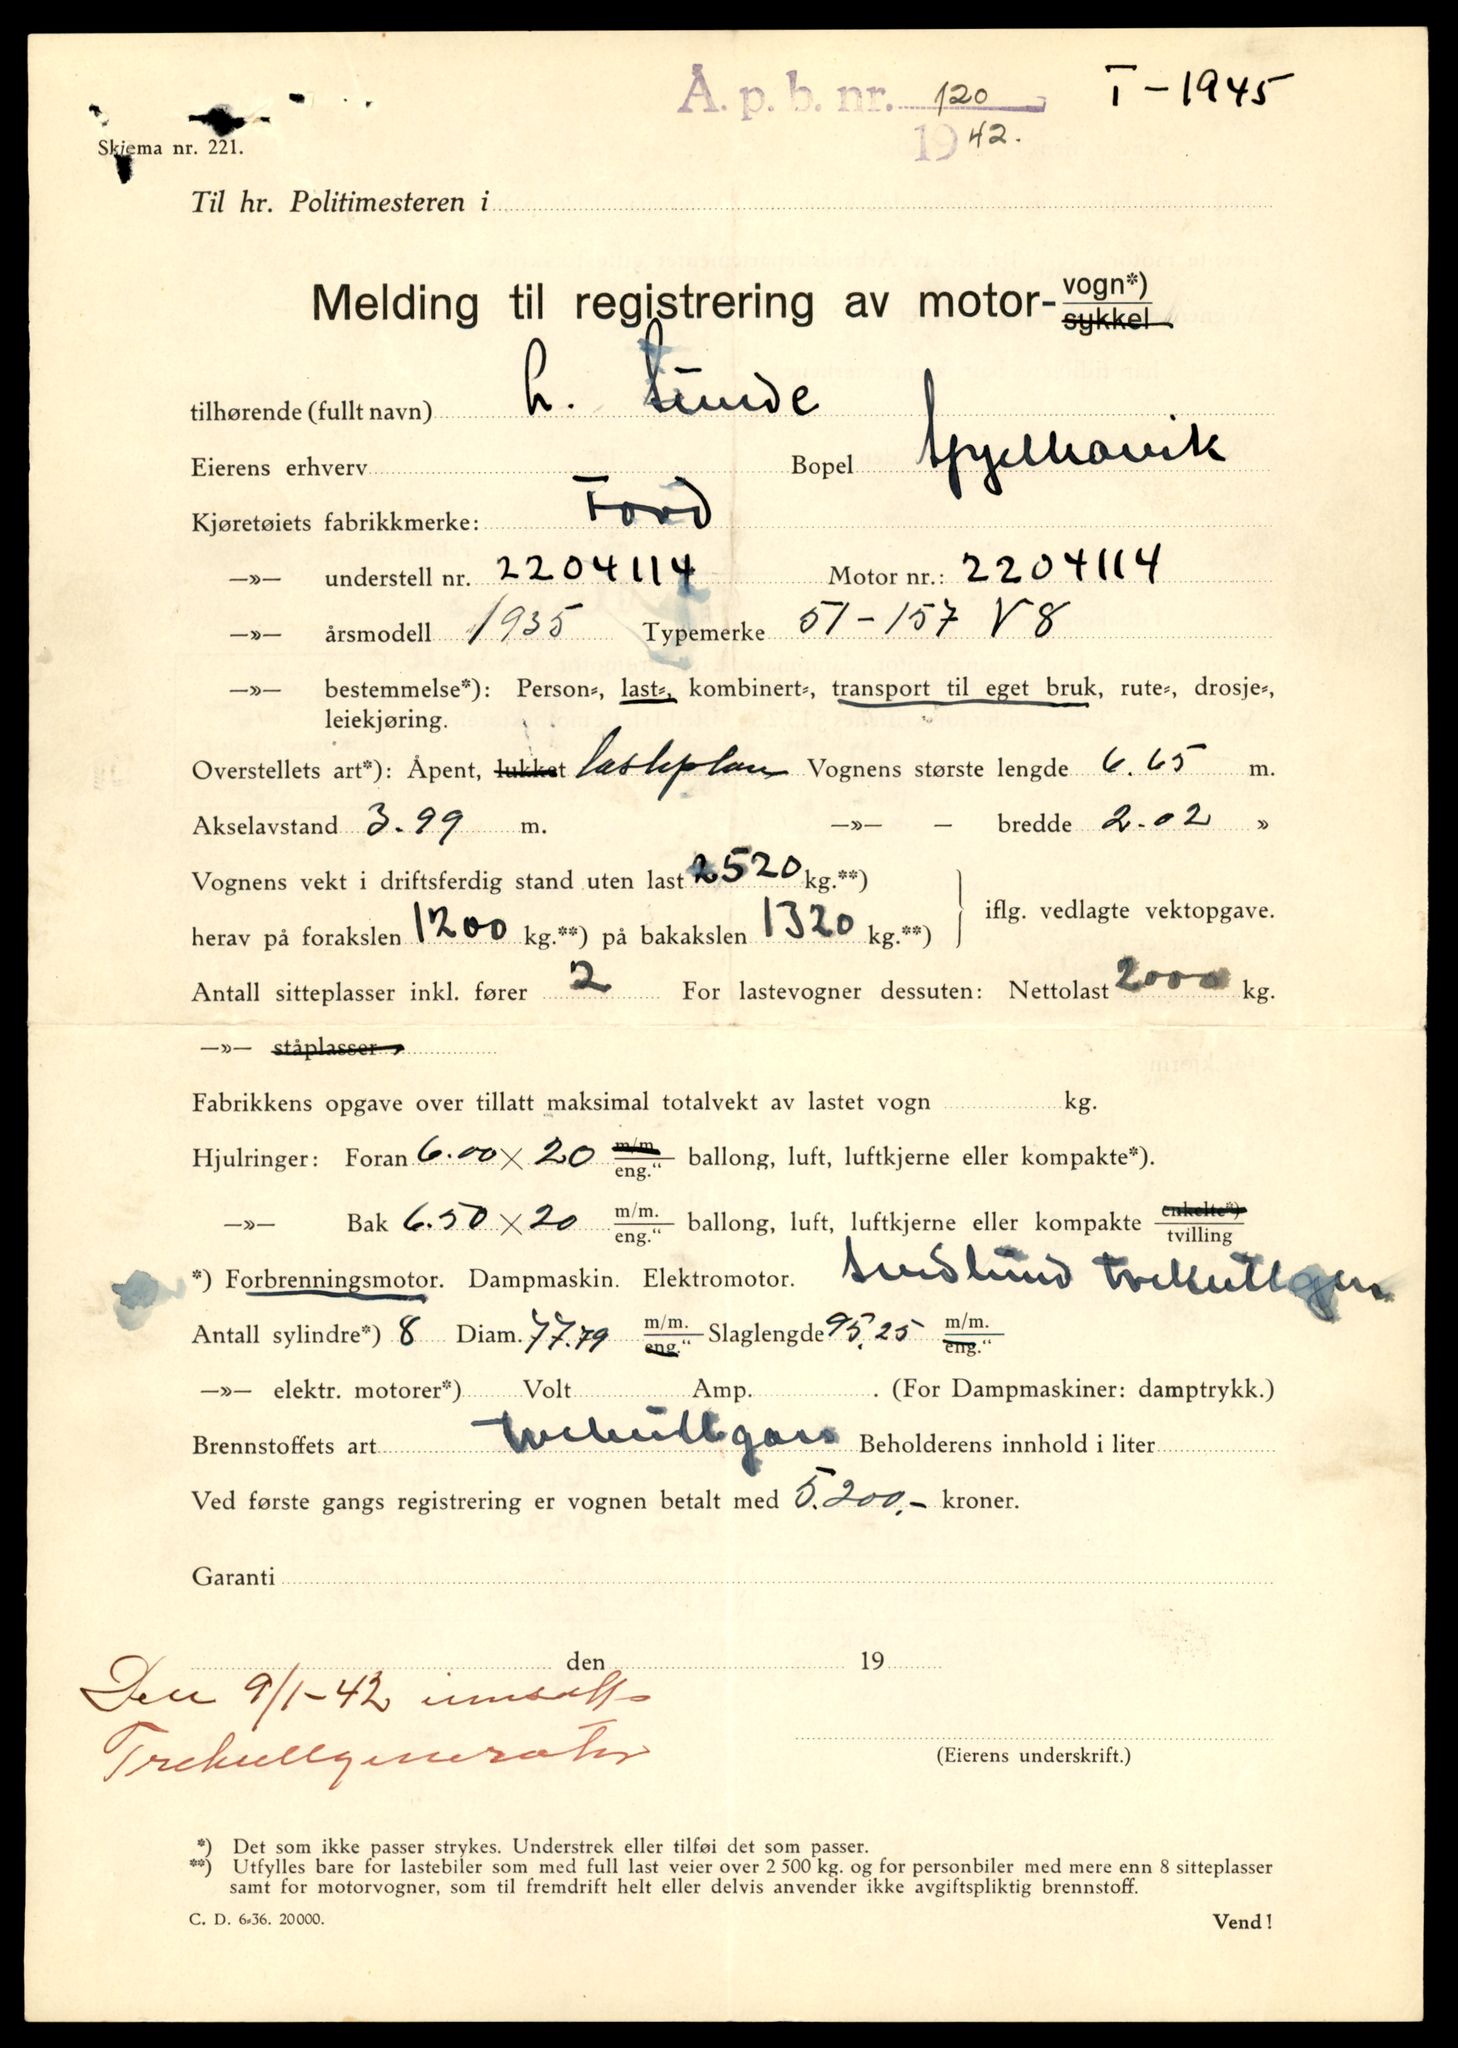 Å. p. b. nr. 120
1942.
I - 1945
Skjema nr. 221.
Til hr. Politimesteren i
Melding til registrering av motor- vogn*)
sykkel
tilhørende (fullt navn) L. Sunde
Eierens erhverv Bopel Spjelkavik
Kjøretøiets fabrikkmerke: Ford
—»— understell nr. 2204114 Motor nr.: 2204114
—»— årsmodell 1935 Typemerke 51-157 V8
—»— bestemmelse*): Person-, last-, kombinert-, transport til eget bruk, rute-, drosje-,
leiekjøring.
Overstellets art*): Åpent, lukket lasteplan Vognens største lengde 6.65 m.
Akselavstand 3.99 m. —»— — bredde 2.02 »
Vognens vekt i driftsferdig stand uten last 2520 kg.**)
herav på forakslen 1200 kg.**) på bakakslen 1320 kg.**) iflg. vedlagte vektopgave.
Antall sitteplasser inkl. fører 2 For lastevogner dessuten: Nettolast 2000 kg.
—»— ståplasser
Fabrikkens opgave over tillatt maksimal totalvekt av lastet vogn kg.
Hjulringer: Foran 6.00 × 20 m/m. eng.“ ballong, luft, luftkjerne eller kompakte*).
—»— Bak 6.50 × 20 m/m. eng.“ ballong, luft, luftkjerne eller kompakte enkelte*) tvilling
*) Forbrenningsmotor. Dampmaskin. Elektromotor. Svedlund trekullgen
Antall sylindre*) 8 Diam. 77.79 m/m. eng.“ Slaglengde 95.25 m/m. eng.“
—»— elektr. motorer*) Volt Amp. . (For Dampmaskiner: damptrykk.)
Brennstoffets art trekullgass Beholderens innhold i liter
Ved første gangs registrering er vognen betalt med 5.200,- kroner.
Garanti
den 19
Den 9/1-42 innsatt
Trekullgenerator
(Eierens underskrift.)
*) Det som ikke passer strykes. Understrek eller tilføi det som passer.
**) Utfylles bare for lastebiler som med full last veier over 2 500 kg. og for personbiler med mere enn 8 sitteplasser
samt for motorvogner, som til fremdrift helt eller delvis anvender ikke avgiftspliktig brennstoff.
C. D. 6-36. 20 000.
Vend !